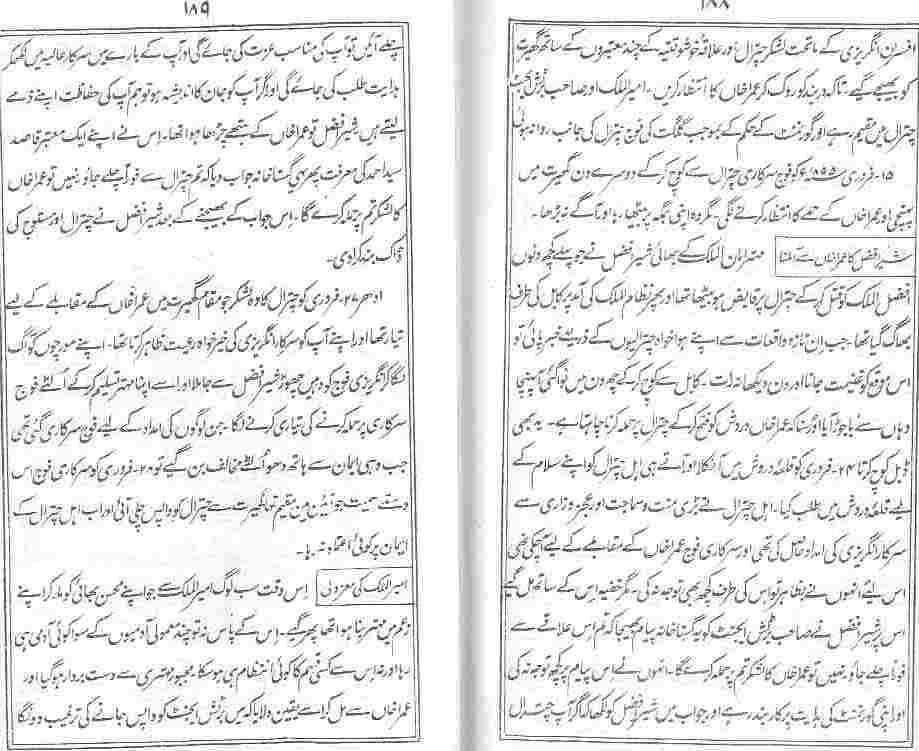 ۱۸۸
افسران انگریزی کے ماتحت لشکر چترال اور علاقۂ خوشوقتیہ کے چند معتبروں کے ساتھ گھیرت
کو بھیجے گیے۔ تاکہ دربند کو روک کر عمرا خاں کا انتظار کریں۔ امیر الملک اور صاحب برٹش ایجنٹ
چترال میں مقیم رہے اور گورنمنٹ کے حکم کے بموجب گلگت کی فوج چترال کی جانب روانہ ہوئی
۱۵۔ فروری ۱۸۹۵ء کو فوج سرکاری چترال سے کوچ کر کے دوسرے دن گھیرت میں
پہنچی اور عمرا خاں کے حملے کا انتظار کرنے لگی۔ مگر وہ اپنی جگہ پر بیٹھا رہا اور آگے نہ بڑھا۔
شیر افضل کا عمرا خاں سے آ ملنا
مہتر امان الملک کے بھائی شیر افضل نے جو پہلے کچھ دنوں
افضل الملک کو قتل کر کے چترال پر قابض ہو بیٹھا تھا اور پھر نظام الملک کی آمد پر کابل کی طرف
بھاگ گیا تھا۔ جب ان تازہ واقعات سے اپنے ہوا خواہ چترالیوں کے ذریعے خبر پائی تو
اس موقع کو غنیمت جانا اور دن دیکھا نہ رات۔ کابل سے کوچ کر کے چھ دن میں نوا گئی آ پہنچا
وہاں سے باجوڑ آیا اور سنا کہ عمرا خاں دروش کو فتح کر کے چترال پر حملہ کرنا چاہتا ہے۔ یہ بھی
ڈبل کوچ کرتا ۲۴۔ فروری کو قلعۂ دروش میں آ نکلا اور آتے ہی اہل چترال کو اپنے سلام کے
لیے قلعۂ دروش میں طلب کیا۔ اہل چترال نے بڑی منت و سماجت اور عجز و زاری سے
سرکار انگریزی کی امداد حاصل کی تھی اور سرکاری فوج عمرا خاں کے مقابلے کے لیے آ چکی تھی
اس لئے انھوں نے بظاہر تو اس کی طرف کچھ بھی توجہ نہ کی۔ مگر خفیہ اس کے ساتھ مل گیے
اس پر شیر افضل نے صاحب برٹش ایجنٹ کو یہ گستاخانہ پیام بھیجا کہ تم اس علاقے سے
فوراً چلے جاؤ۔ نہیں تو عمرا خاں کا لشکر تم پر حملہ کرے گا۔ انھوں نے اس پیام پر کچھ توجہ نہ کی
اور اپنی گورنمنٹ کی ہدایت پر کاربند رہے اور جواب میں شیر افضل کو لکھا کہ اگر آپ چترال
۱۸۹
چلے آئیں تو آپ کی مناسب عزت کی جائے گی اور آپ کے بارے میں سرکار عالیہ میں لکھ کر
ہدایت طلب کی جائے گی اور اگر آپ کو جان کا اندیشہ ہو تو ہم آپ کی حفاظت اپنے ذمے
لیتے ہیں شیر افضل تو عمرا خاں کے ہتھے چڑھا ہوا تھا۔ اس نے اپنے ایک معتبر قاصد
سید احمد کی معرفت پھر یہی گستاخانہ جواب دیا کہ تم چترال سے فوراً چلے جاؤ نہیں تو عمرا خاں
کا لشکر تم پر حملہ کرے گا۔ اس جواب کے بھیجنے کے بعد شیر افضل نے چترال اور مستوج کی
ڈاک بند کرا دی۔
ادھر ۲۷۔ فروری کو چترال کا وہ لشکر جو مقام گھیرت میں عمرا خاں کے مقابلے کے لیے
تیار تھا اور اپنے آپ کو سرکار انگریزی کی خیر خواہ رعیت ظاہر کرتا تھا۔ اپنے مورچوں کو آگ
لگا کر انگریزی فوج کو وہیں چھوڑ شیر افضل سے جا ملا اور اسے اپنا مہتر تسلیم کر کے الٹے فوج
سرکاری پر حملہ کرنے کی تیاری کرنے لگا۔ جن لوگوں کی امداد کے لیے فوج سرکاری گئی تھی
جب وہی ایمان سے ہاتھ دھو الٹے مخالف بن گیے تو ۲۸۔ فروری کو سرکاری فوج اس
دستے سمیت جو آئین میں مقیم تھا گھیرت سے چترال کو واپس چلی آئی اور اب اہل چترال کے
ایمان پر کوئی اعتماد نہ رہا۔
امیر الملک کی معزولی
اس وقت سب لوگ امیر الملک سے جو اپنے محسن بھائی کو مار کر اپنے
زعم میں مہتر بنا ہوا تھا پھر گیے۔ اس کے پاس نہ تو چند معمولی آدمیوں کے سوا کوئی آدمی ہی
رہا اور نہ اس سے کسی قسم کا کوئی انتظام ہی ہو سکا۔ مجبور مہتری سے دست بردار ہو گیا اور
عمرا خاں سے مل کر اسے یقین دلایا کہ میں برٹش ایجنٹ کو واپس جانے کی ترغیب دونگا